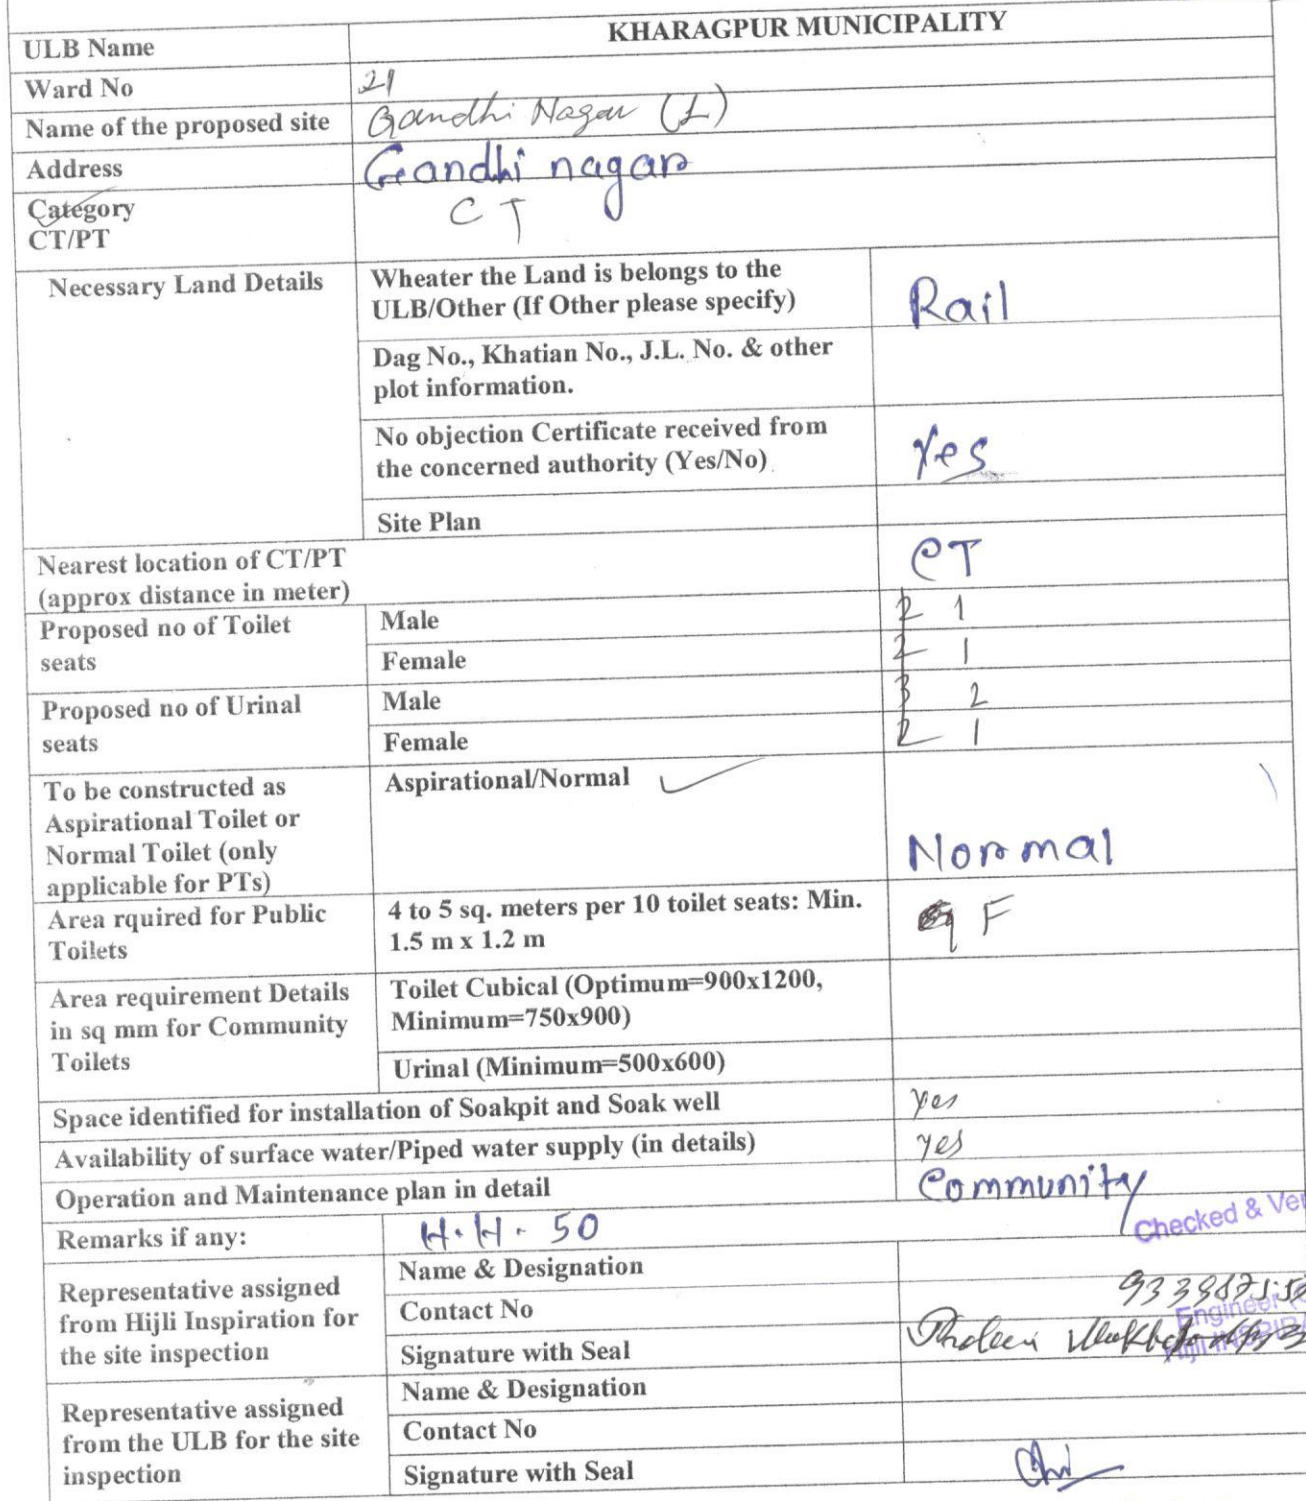 ULB Name KHARAGPUR MUNICIPALITY
Ward No 21
Name of the proposed site Gandhi Nagar (L)
Address Gandhi nagar
Category
CT/PT CT
Necessary Land Details Wheater the Land is belongs to the
ULB/Other (If Other please specify) Rail
Dag No., Khatian No., J.L. No. & other
plot information.
No objection Certificate received from
the concerned authority (Yes/No) Yes
Site Plan
Nearest location of CT/PT
(approx distance in meter) CT
Proposed no of Toilet
seats
Male 2 1
Female 2 1
Proposed no of Urinal
seats
Male 3 2
Female 2 1
To be constructed as
Aspirational Toilet or
Normal Toilet (only
applicable for PTs)
Aspirational/Normal
Normal
Area rquired for Public
Toilets
4 to 5 sq. meters per 10 toilet seats: Min.
1.5 m x 1.2 m
F
Area requirement Details
in sq mm for Community
Toilets
Toilet Cubical (Optimum=900x1200,
Minimum=750x900)
Urinal (Minimum=500x600)
Space identified for installation of Soakpit and Soak well yes
Availability of surface water/Piped water supply (in details) yes
Operation and Maintenance plan in detail Community
Checked & Ver
Remarks if any: H.H. 50
Representative assigned
from Hijli Inspiration for
the site inspection
Name & Designation
Contact No
Engineer
Signature with Seal
Hijli INSPIRA
Representative assigned
from the ULB for the site
inspection
Name & Designation
Contact No
Signature with Seal